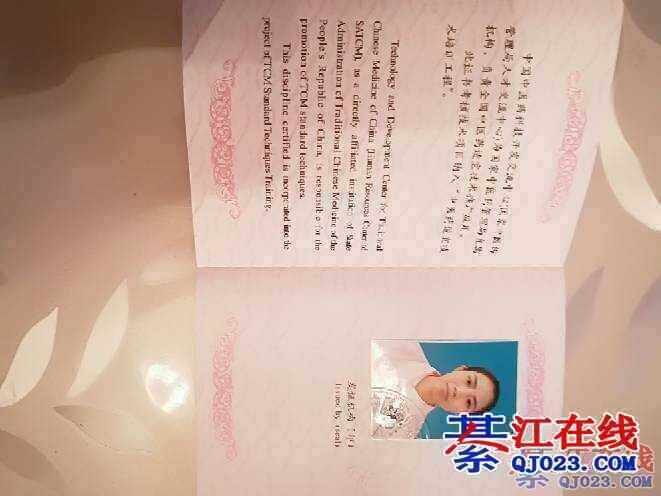 中国中医药科技开发交流中心(国家中医药
管理局人才交流中心)为国家中医药管理局直属
机构，负责全国中医药适宜技术推广项目。
此证书考核技术项目纳入“中医药适宜技
术培训工程”。
Technology and Development Center for Traditional
Chinese Medicine of China (Human Resources Center of
SATCM), as a directly affiliated institution of State
Administration of Traditional Chinese Medicine of the
People's Republic of China, is responsible for the
promotion of TCM standard techniques.
This discipline certified is incorporated into the
project of TCM Standard Techniques Training.
发证机构
Issued by (seal)
綦江在线
QJ023.COM